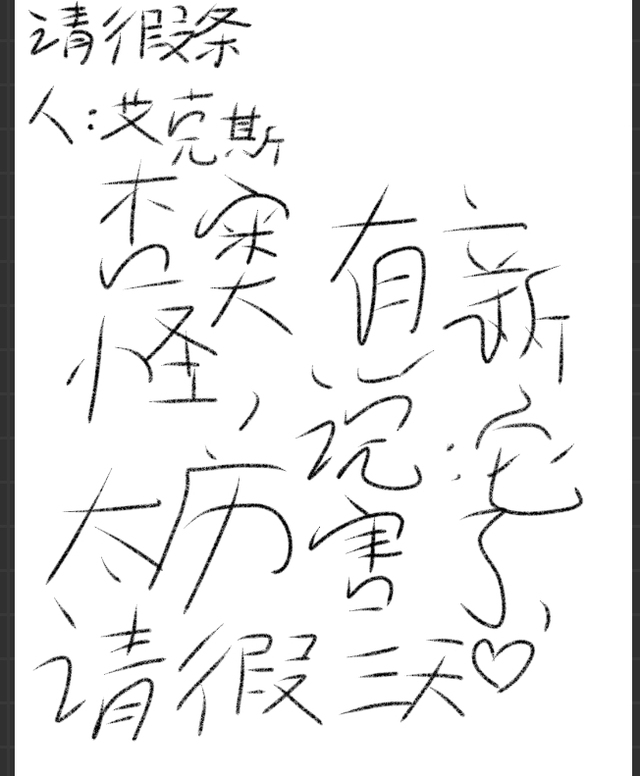 请假条
人:艾克斯
杏奥有新
怪,说:它
太厉害了,
请假三天♡